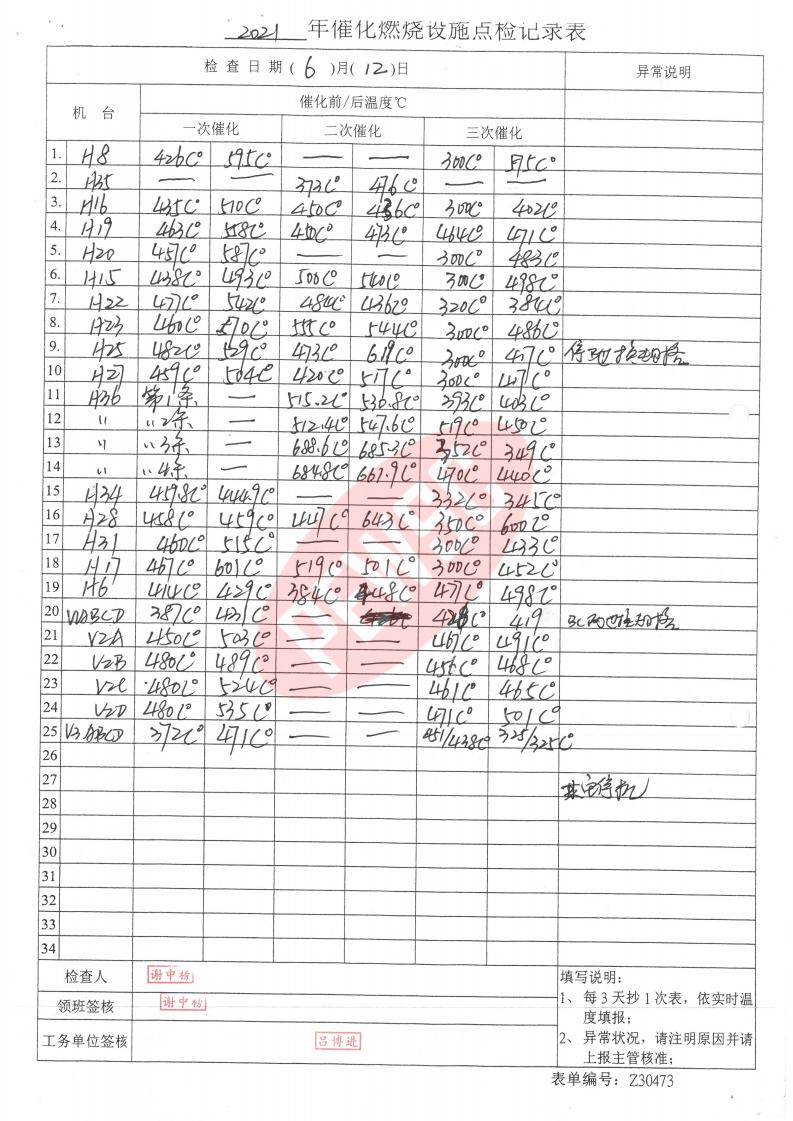 2021 年催化燃烧设施点检记录表
检查日期( 6 )月( 12 )日 异常说明
机 台 催化前/后温度℃
一次催化 二次催化 三次催化
1. H8 426C° 595C° — — 300C° 575C°
2. H35 — — 373C° 476C° — —
3. H16 435C° 510C° 450C° 436C° 300C 402C°
4. H19 463C° 558C° 450C° 473C° 464C° 471C°
5. H20 457C° 587C° — — 300C° 483C°
6. H15 438C° 493C° 500C° 540C° 300C° 498C°
7. H22 477C° 542C° 484C° 436C° 320C° 384C°
8. H23 460C° 570C° 555C° 544C° 300C° 486C°
9. H25 482C° 529C° 473C° 619C° 300C° 417C°
10 H27 459C° 504C° 420C° 517C° 300C° 447C°
11 H36 第1条 — 515.2C° 530.8C° 393C° 403C°
12 〃 〃2条 — 512.4C° 547.6C° 519C° 450C°
13 〃 〃3条 — 688.6C° 685.3C° 352C° 349C°
14 〃 〃4条 — 684.8C° 661.9C° 490C° 440C°
15 H34 459.8C° 444.9C° — — 332C° 345C°
16 H28 458C° 459C° 447C° 643C° 350C° 600C°
17 H31 460C° 515C° — — 300C° 433C°
18 H17 467C° 601C° 519C° 501C° 300C° 452C°
19 H6 414C° 429C° 384C° 448C° 471C° 498C°
20 V1ABCD 387C° 431C° — 428C° 419
21 V2A 450C° 503C° — — 467C° 491C°
22 V2B 480C° 489C° — — 456C° 468C°
23 V2C 480C° 524C° — — 461C° 465C°
24 V2D 480C° 535C° — — 471C° 501C°
25 V3ABCD 372C° 471C° — — 451/438C° 325/325C°
26
27
其它停机
28
29
30
31
32
33
34
检查人 谢中枋
领班签核 谢中枋
工务单位签核 吕博进
填写说明:
1、每3天抄1次表,依实时温
度填报;
2、异常状况,请注明原因并请
上报主管核准;
表单编号:Z30473